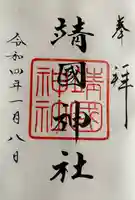 奉拝
靖國神社
靖国神社
令和四年一月八日